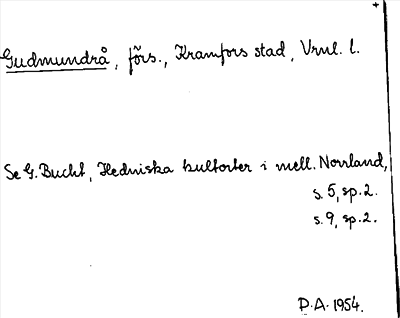 Gudmundrå, förs., Kramfors stad, Vrnl. l.
Se G. Bucht, Hedniska kultorter i mell. Norrland,
s. 5, sp. 2.
s. 9, sp. 2.
D.A. 1954.